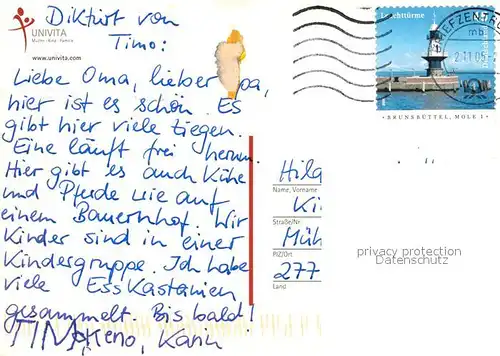 Diktiert von
Timo:
UNIVITA
Mutter · Kind · Familie
www.univita.com
Liebe Oma, lieber pa,
hier ist es schön. Es
gibt hier viele Ziegen.
Eine läuft frei herum.
Hier gibt es auch Kühe
und Pferde wie auf
einem Bauernhof. Wir
Kinder sind in einer
Kindergruppe. Ich habe
viele Ess Kastanien
gesammelt. Bis bald!
TIMO, Karin
Leuchttürme
BRUNSBÜTTEL, MOLE 1
BRIEFZENTR
mb
2.11.05
Hila
Name, Vorname
Ki
Straße/Nr
Müh
PLZ/Ort
277
Land
privacy protection
Datenschutz